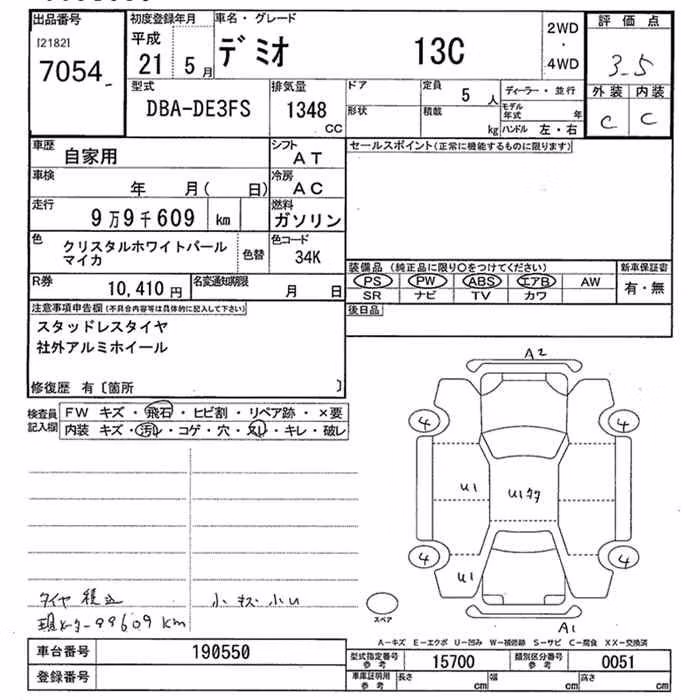 出品番号
[2182]
7054
初度登録年月
平成
21 5月
車名・グレード
デミオ 13C
2WD
・
4WD
評価点
3.5
外装 内装
C C
型式
DBA-DE3FS
排気量
1348
CC
ドア
形状
定員
5 人
積載
kg
ディーラー・並行
モデル
年式 年
ハンドル 左・右
車歴
自家用
シフト
AT
車検
年 月( 日)
冷房
AC
走行
9万9千609 km
燃料
ガソリン
色
クリスタルホワイトパール
マイカ
色替
色コード
34K
R券
10,410 円
名変通知期限
月 日
セールスポイント(正常に機能するものに限ります)
装備品 (純正品に限り○をつけてください)
PS PW ABS エアB AW
SR ナビ TV カワ
新車保証書
有・無
後日品
注意事項申告欄(不具合内容等は具体的に記入して下さい)
スタッドレスタイヤ
社外アルミホイール
修復歴 有〔箇所 〕
検査員
記入欄
FW キズ・飛石・ヒビ割・リペア跡・×要
内装 キズ・汚レ・コゲ・穴・スレ・キレ・破レ
A2
4 4
U1 U1
4 4
U1
A1
タイヤ
小キズ 小U
現メーター99609km
スペア
A-キズ E-エクボ U-凹み W-補修跡 S-サビ C-腐食 XX-交換済
車台番号 190550
登録番号
型式指定番号
参考
15700
類別区分番号
参考
0051
車庫証明用
参考
長さ cm
幅 cm
高さ cm